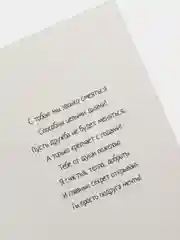 С тобою мы можем смеяться
Способны целыми днями!
Пусть дружба не будет меняться,
А только крепчает с годами!
Тебе от души пожелаю
Я счастья, тепла, доброты
И главный секрет открываю:
Ты просто подруга мечты!